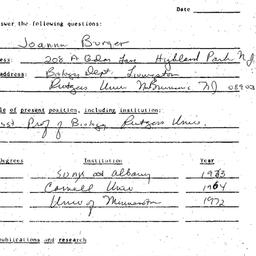 Date
swer the following questions:
Joanna Burger
ess: 208 A Cedar Lane Highland Park N.J.
address: Biology Dept. Livingston
Rutgers Univ N. Brunswick NJ 08903
le of present position, including institution:
sst Prof of Biology Rutgers Univ.
egrees Institution Year
SUNY at Albany 1963
Cornell Univ 1964
Univ of Minnesota 1972
ublications and research